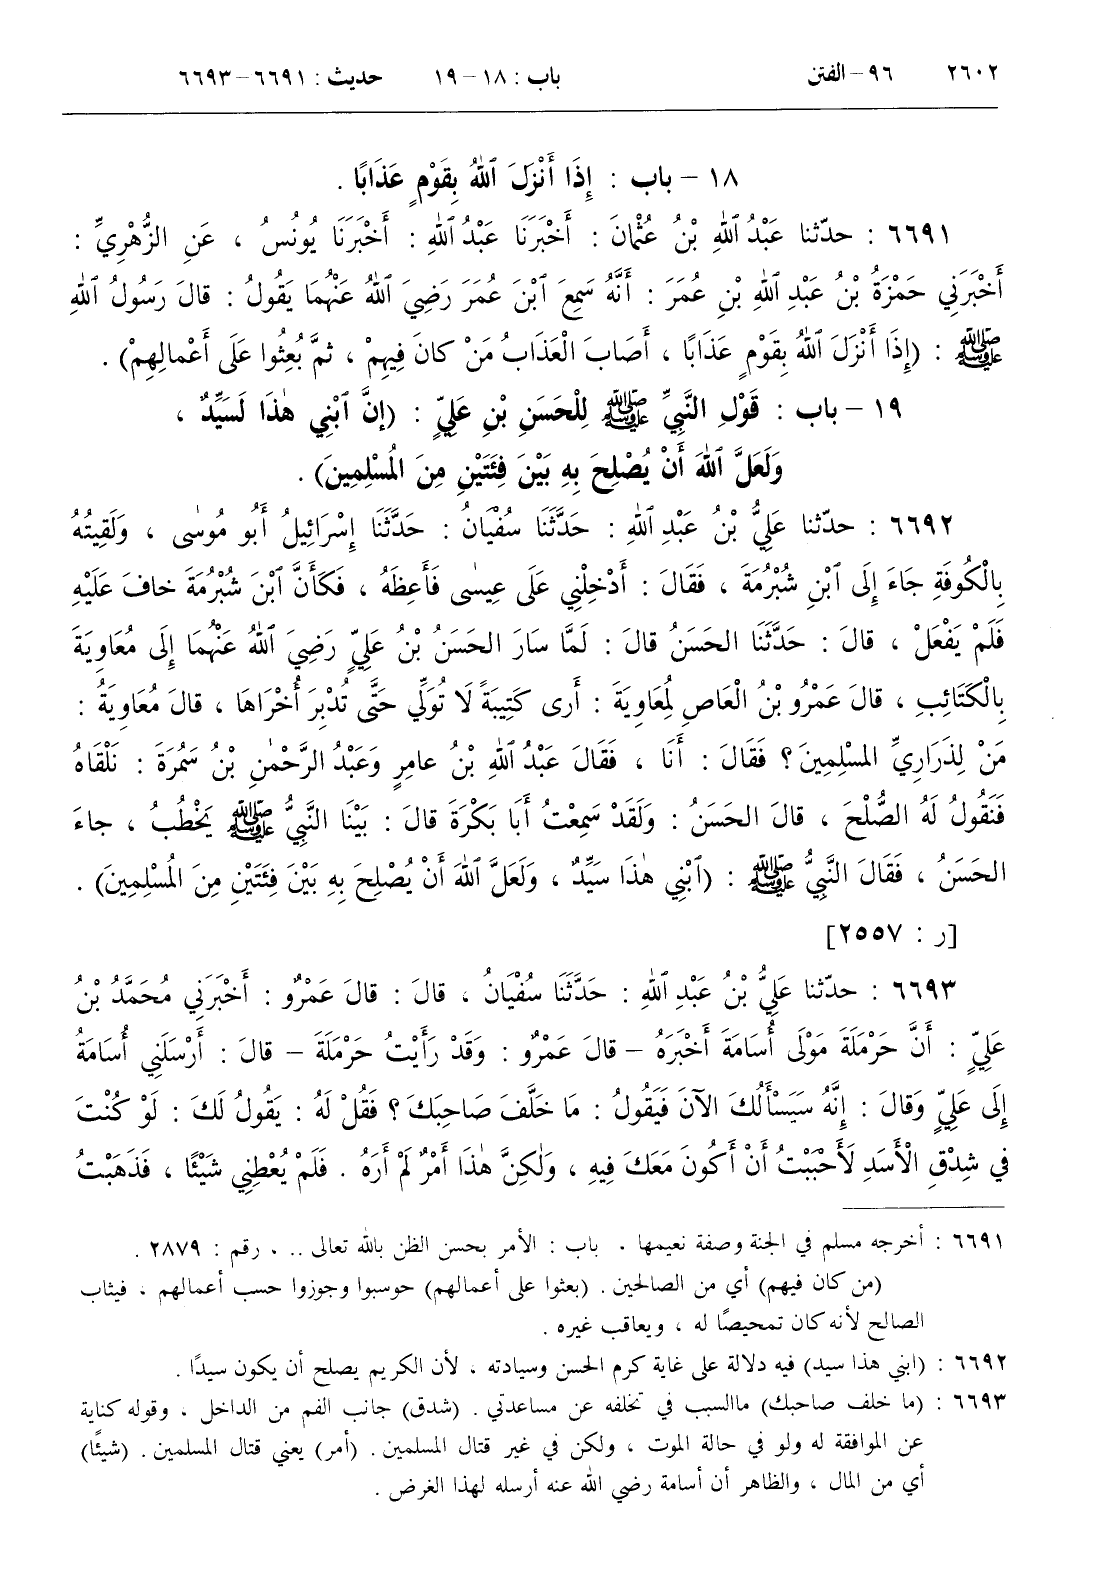 ٢٦٠٢ ٩٦ – الفتن باب : ١٨ – ١٩ حديث : ٦٦٩١ – ٦٦٩٣
١٨ – باب : إِذَا أَنْزَلَ ٱللهُ بِقَوْمٍ عَذَابًا .
٦٦٩١ : حدّثنا عَبْدُ ٱللهِ بْنُ عُثْمانَ : أَخْبَرَنَا عَبْدُ ٱللهِ : أَخْبَرَنَا يُونُسُ ، عَنِ الزُّهْرِيِّ :
أَخْبَرَنِي حَمْزَةُ بْنُ عَبْدِ ٱللهِ بْنِ عُمَرَ : أَنَّهُ سَمِعَ ٱبْنَ عُمَرَ رَضِيَ ٱللهُ عَنْهُما يَقُولُ : قالَ رَسُولُ ٱللهِ
ﷺ : (إِذَا أَنْزَلَ ٱللهُ بِقَوْمٍ عَذَابًا ، أَصَابَ الْعَذَابُ مَنْ كانَ فِيهِمْ ، ثمَّ بُعِثُوا عَلَى أَعْمالِهِمْ) .
١٩ – باب : قَوْلِ النَّبِيِّ ﷺ لِلْحَسَنِ بْنِ عَلِيٍّ : (إِنَّ ٱبْنِي هٰذَا لَسَيِّدٌ ،
وَلَعَلَّ ٱللهَ أَنْ يُصْلِحَ بِهِ بَيْنَ فِئَتَيْنِ مِنَ المُسْلِمِينَ) .
٦٦٩٢ : حدّثنا عَلِيُّ بْنُ عَبْدِ ٱللهِ : حَدَّثَنَا سُفْيَانُ : حَدَّثَنَا إِسْرَائِيلُ أَبُو مُوسٰى ، وَلَقِيتُهُ
بِالْكُوفَةِ جَاءَ إِلَى ٱبْنِ شُبْرُمَةَ ، فَقَالَ : أَدْخِلْنِي عَلَى عِيسٰى فَأَعِظَهُ ، فَكَأَنَّ ٱبْنَ شُبْرُمَةَ خافَ عَلَيْهِ
فَلَمْ يَفْعَلْ ، قالَ : حَدَّثَنَا الحَسَنُ قالَ : لَمَّا سَارَ الحَسَنُ بْنُ عَلِيٍّ رَضِيَ ٱللهُ عَنْهُما إِلَى مُعَاوِيَةَ
بِالْكَتَائِبِ ، قالَ عَمْرُو بْنُ الْعَاصِ لِمُعَاوِيَةَ : أَرى كَتِيبَةً لَا تُوَلِّي حَتَّى تُدْبِرَ أُخْرَاهَا ، قالَ مُعَاوِيَةُ :
مَنْ لِذَرَارِيِّ المُسْلِمِينَ ؟ فَقَالَ : أَنَا ، فَقَالَ عَبْدُ ٱللهِ بْنُ عامِرٍ وَعَبْدُ الرَّحْمٰنِ بْنُ سَمُرَةَ : نَلْقَاهُ
فَنَقُولُ لَهُ الصُّلْحَ ، قالَ الحَسَنُ : وَلَقَدْ سَمِعْتُ أَبَا بَكْرَةَ قالَ : بَيْنَا النَّبِيُّ ﷺ يَخْطُبُ ، جاءَ
الحَسَنُ ، فَقَالَ النَّبِيُّ ﷺ : (ٱبْنِي هٰذَا سَيِّدٌ ، وَلَعَلَّ ٱللهَ أَنْ يُصْلِحَ بِهِ بَيْنَ فِئَتَيْنِ مِنَ المُسْلِمِينَ) .
[ر : ٢٥٥٧]
٦٦٩٣ : حدّثنا عَلِيُّ بْنُ عَبْدِ ٱللهِ : حَدَّثَنَا سُفْيَانُ ، قالَ : قالَ عَمْرٌو : أَخْبَرَنِي مُحَمَّدُ بْنُ
عَلِيٍّ : أَنَّ حَرْمَلَةَ مَوْلَى أُسَامَةَ أَخْبَرَهُ – قالَ عَمْرٌو : وَقَدْ رَأَيْتُ حَرْمَلَةَ – قالَ : أَرْسَلَنِي أُسَامَةُ
إِلَى عَلِيٍّ وَقالَ : إِنَّهُ سَيَسْأَلُكَ الآنَ فَيَقُولُ : مَا خَلَّفَ صَاحِبَكَ ؟ فَقُلْ لَهُ : يَقُولُ لَكَ : لَوْ كُنْتَ
فِي شِدْقِ الْأَسَدِ لَأَحْبَبْتُ أَنْ أَكُونَ مَعَكَ فِيهِ ، وَلٰكِنَّ هٰذَا أَمْرٌ لَمْ أَرَهُ . فَلَمْ يُعْطِنِي شَيْئًا ، فَذَهَبْتُ
٦٦٩١ : أخرجه مسلم في الجنة وصفة نعيمها . باب : الأمر بحسن الظن بالله تعالى .. . رقم : ٢٨٧٩ .
(من كان فيهم) أي من الصالحين . (بعثوا على أعمالهم) حوسبوا وجوزوا حسب أعمالهم ، فيثاب
الصالح لأنه كان تمحيصًا له ، ويعاقب غيره .
٦٦٩٢ : (ابني هذا سيد) فيه دلالة على غاية كرم الحسن وسيادته ، لأن الكريم يصلح أن يكون سيدًا .
٦٦٩٣ : (ما خلف صاحبك) ماالسبب في تخلفه عن مساعدتي . (شدق) جانب الفم من الداخل ، وقوله كناية
عن الموافقة له ولو في حالة الموت ، ولكن في غير قتال المسلمين . (أمر) يعني قتال المسلمين . (شيئًا)
أي من المال ، والظاهر أن أسامة رضي الله عنه أرسله لهذا الغرض .